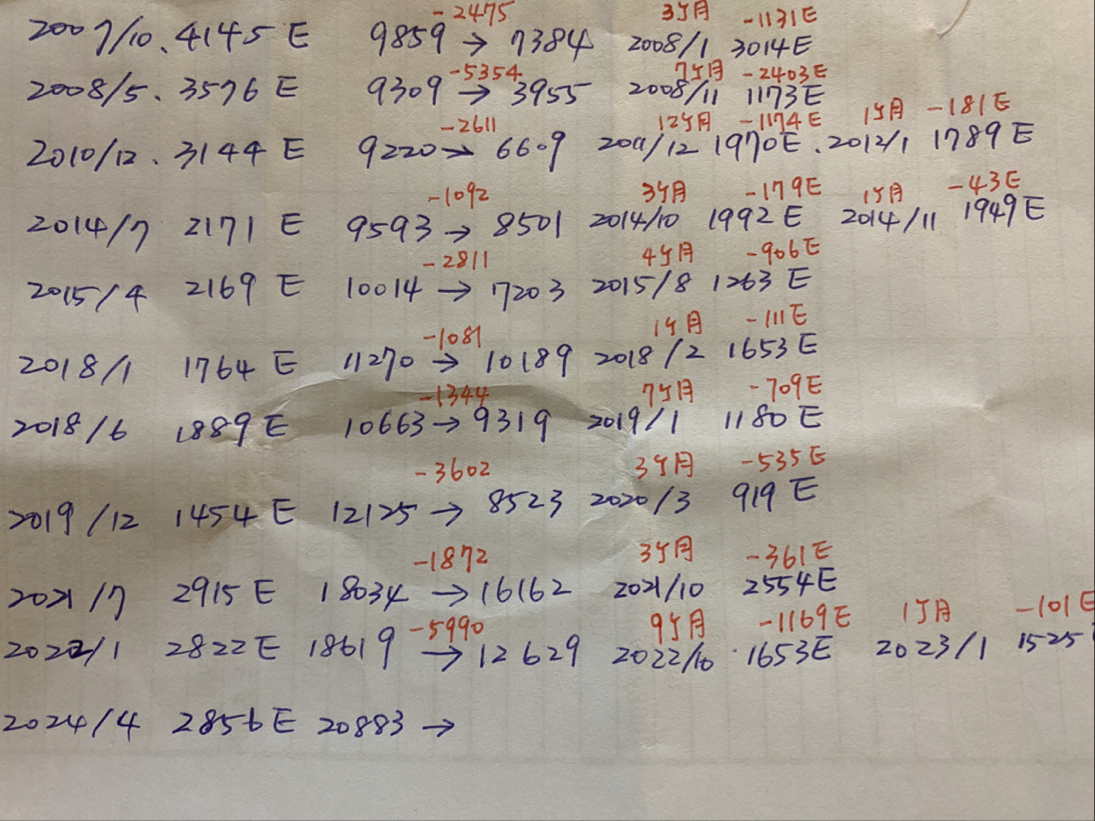 -2475 3ケ月 -1131E
2007/10. 4145 E 9859 → 7384 2008/1 3014E
-5354 7ケ月 -2403E
2008/5. 3576 E 9309 → 3955 2008/11 1173E
-2611 12ケ月 -1174E 1ケ月 -181E
2010/12. 3144 E 9220 → 6609 2011/12 1970E. 2012/1 1789 E
-1092 3ケ月 -179E 1ケ月 -43E
2014/7 2171 E 9593 → 8501 2014/10 1992 E 2014/11 1949E
-2811 4ケ月 -906E
2015/4 2169 E 10014 → 7203 2015/8 1263 E
-1081 1ケ月 -111E
2018/1 1764 E 11270 → 10189 2018/2 1653E
-1344 7ケ月 -709E
2018/6 1889 E 10663 → 9319 2019/1 1180 E
-3602 3ケ月 -535E
2019/12 1454 E 12125 → 8523 2020/3 919 E
-1872 3ケ月 -361E
2021/7 2915 E 18034 → 16162 2021/10 2554E
-5990 9ケ月 -1169E 1ケ月 -101E
2022/1 2822 E 18619 → 12629 2022/10 1653E 2023/1 1525
2024/4 2856 E 20883 →